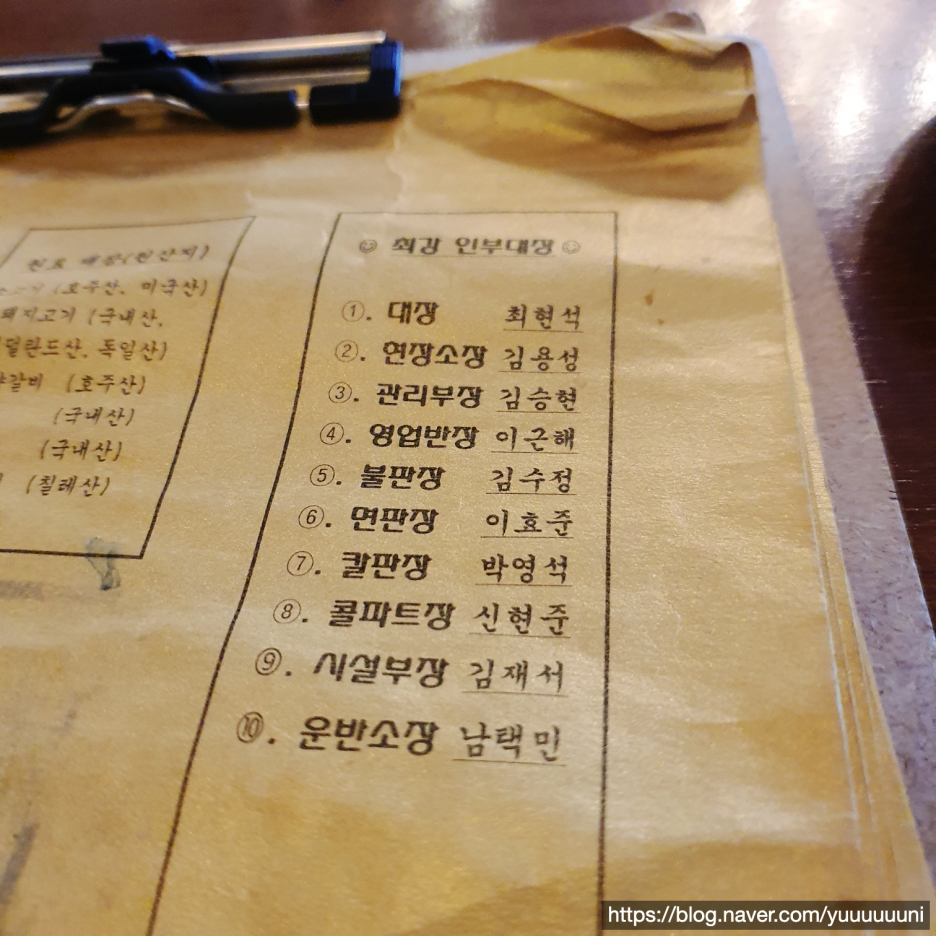 원료 매장(원산지)
(호주산, 미국산)
돼지고기 (국내산,
덜란드산, 독일산)
갈비 (호주산)
(국내산)
(국내산)
(칠레산)
☺ 최강 인부대장 ☺
①. 대장 최현석
②. 현장소장 김용성
③. 관리부장 김승현
④. 영업반장 이근해
⑤. 불판장 김수정
⑥. 면판장 이효준
⑦. 칼판장 박영석
⑧. 콜파트장 신현준
⑨. 시설부장 김재서
⑩. 운반소장 남택민
https://blog.naver.com/yuuuuuuni